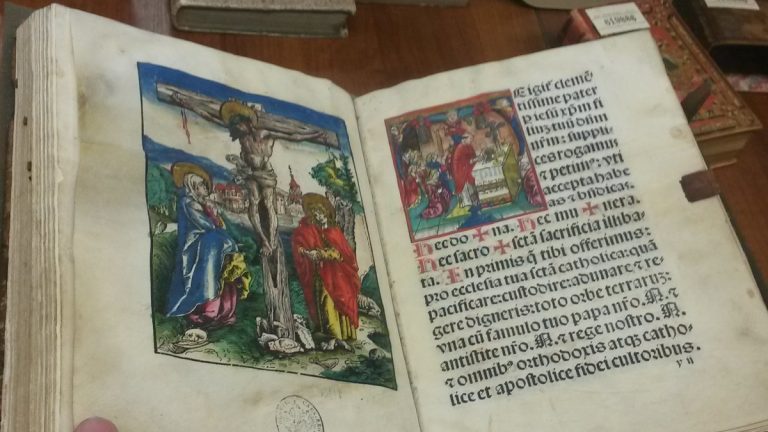 E igiť clemē
tissime pater
p iesū xp̄m fi
liuȝ tuū dn̄m
nr̄m: suppli
ces rogamus
⁊ petim⁹: vti
accepta habe
as ⁊ bn̄dicas.
Hec do + na. Hec mu + nera.
Hec sacro + sctā sacrificia illiba
ta. In primis q̄ tibi offerimus:
pro ecclesia tua sctā catholica: quā
pacificare: custodire: adunare ⁊ re
gere digneris: toto orbe terraruȝ:
vna cū famulo tuo papa nr̄o. N. ⁊
antistite nr̄o. N. ⁊ rege nostro. N.
⁊ omnib⁹ orthodoxis atqȝ catho-
lice et apostolice fidei cultoribus.
y ii